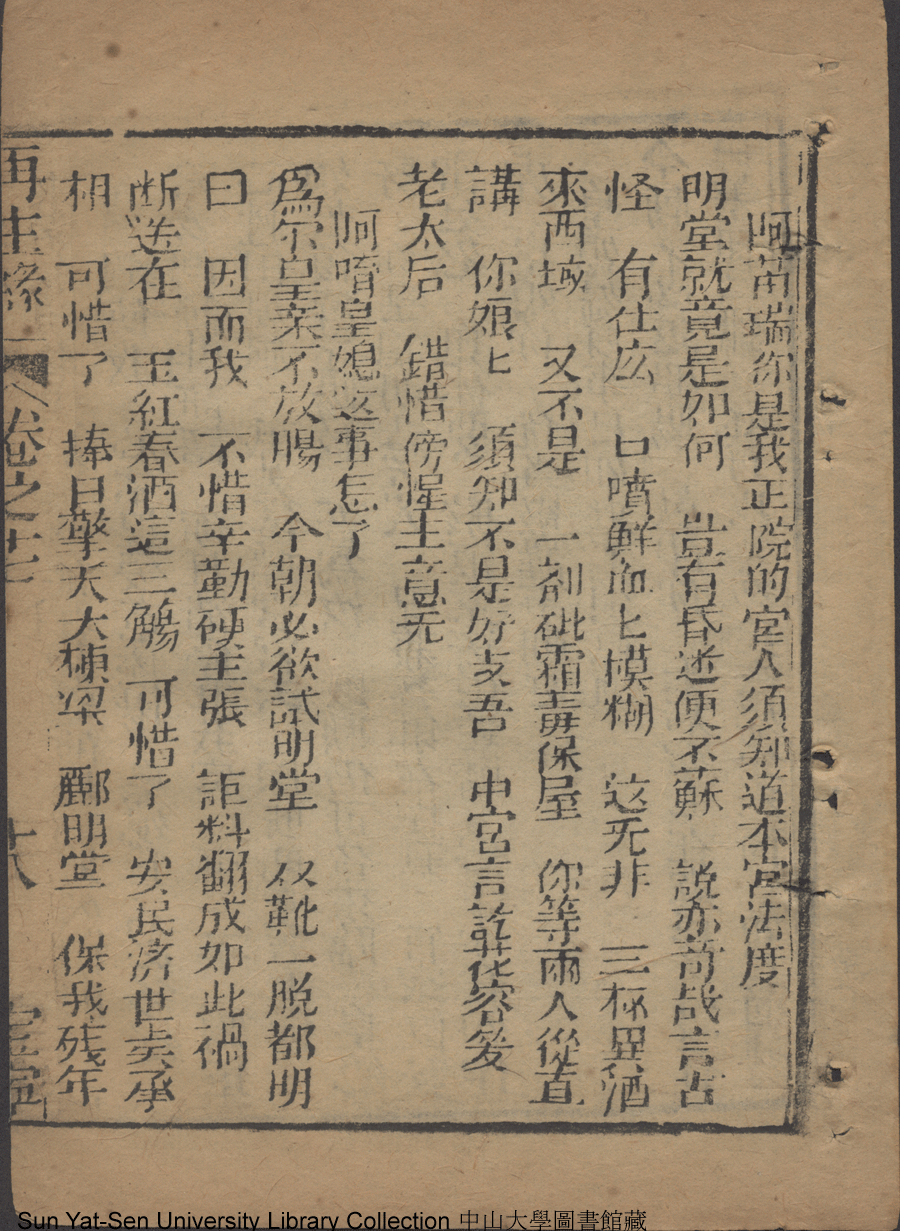 阿苗瑞你是我正院的宮人須知道本宮法度
明堂就竟是如何 豈有昏迷便不蘇 説亦奇哉言古
怪 有仕庅 口噴鮮血匕模糊 这旡非 三杯異酒
來西域 又不是 一剤砒霜毒保屋 你等兩人從直
講 你娘匕 須知不是好支吾 中宮言訖花容发
老太后 錯惜傍惶主意无
阿唷皇媳这事怎了
爲尔皇亲不放腸 今朝必欲試明堂 双靴一脱都明
曰 因而我 不惜辛勤硬主張 詎料翻成如此禍
断送在 玉紅春酒這三觴 可惜了 安民済世真承
相 可惜了 捧日擎天大棟梁 酈明堂 保我残年
再生緣 卷之十七 十八 寧
Sun Yat-Sen University Library Collection 中山大學圖書館藏